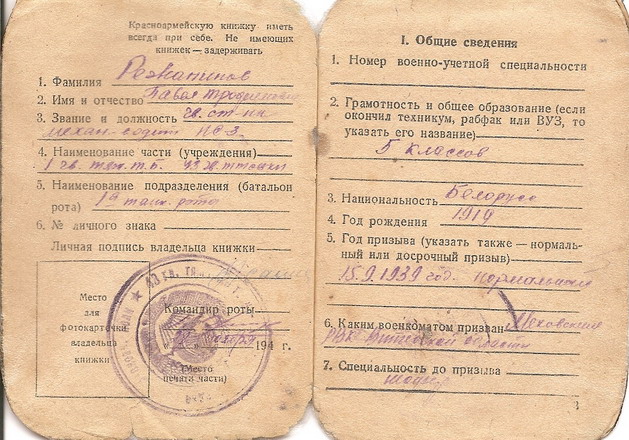 Красноармейскую книжку иметь
всегда при себе. Не имеющих
книжек — задерживать
1. Фамилия
2. Имя и отчество Павел
3. Звание и должность гв. ст-на
механ-водит
4. Наименование части (учреждения)
1 гв.
5. Наименование подразделения (батальон
рота) 1я танк. рота
6. № личного знака
Личная подпись владельца книжки
Место
для
фотокарточки
владельца
книжки
Командир роты
194 г.
(Место
печати части)
I. Общие сведения
1. Номер военно-учетной специальности
2. Грамотность и общее образование (если
окончил техникум, рабфак или ВУЗ, то
указать его название)
5 классов
3. Национальность Белорус
4. Год рождения 1919
5. Год призыва (указать также — нормаль-
ный или досрочный призыв)
15.9.1939 год. нормальный
6. Каким военкоматом призван Меховским
РВК Витебской области
7. Специальность до призыва
3